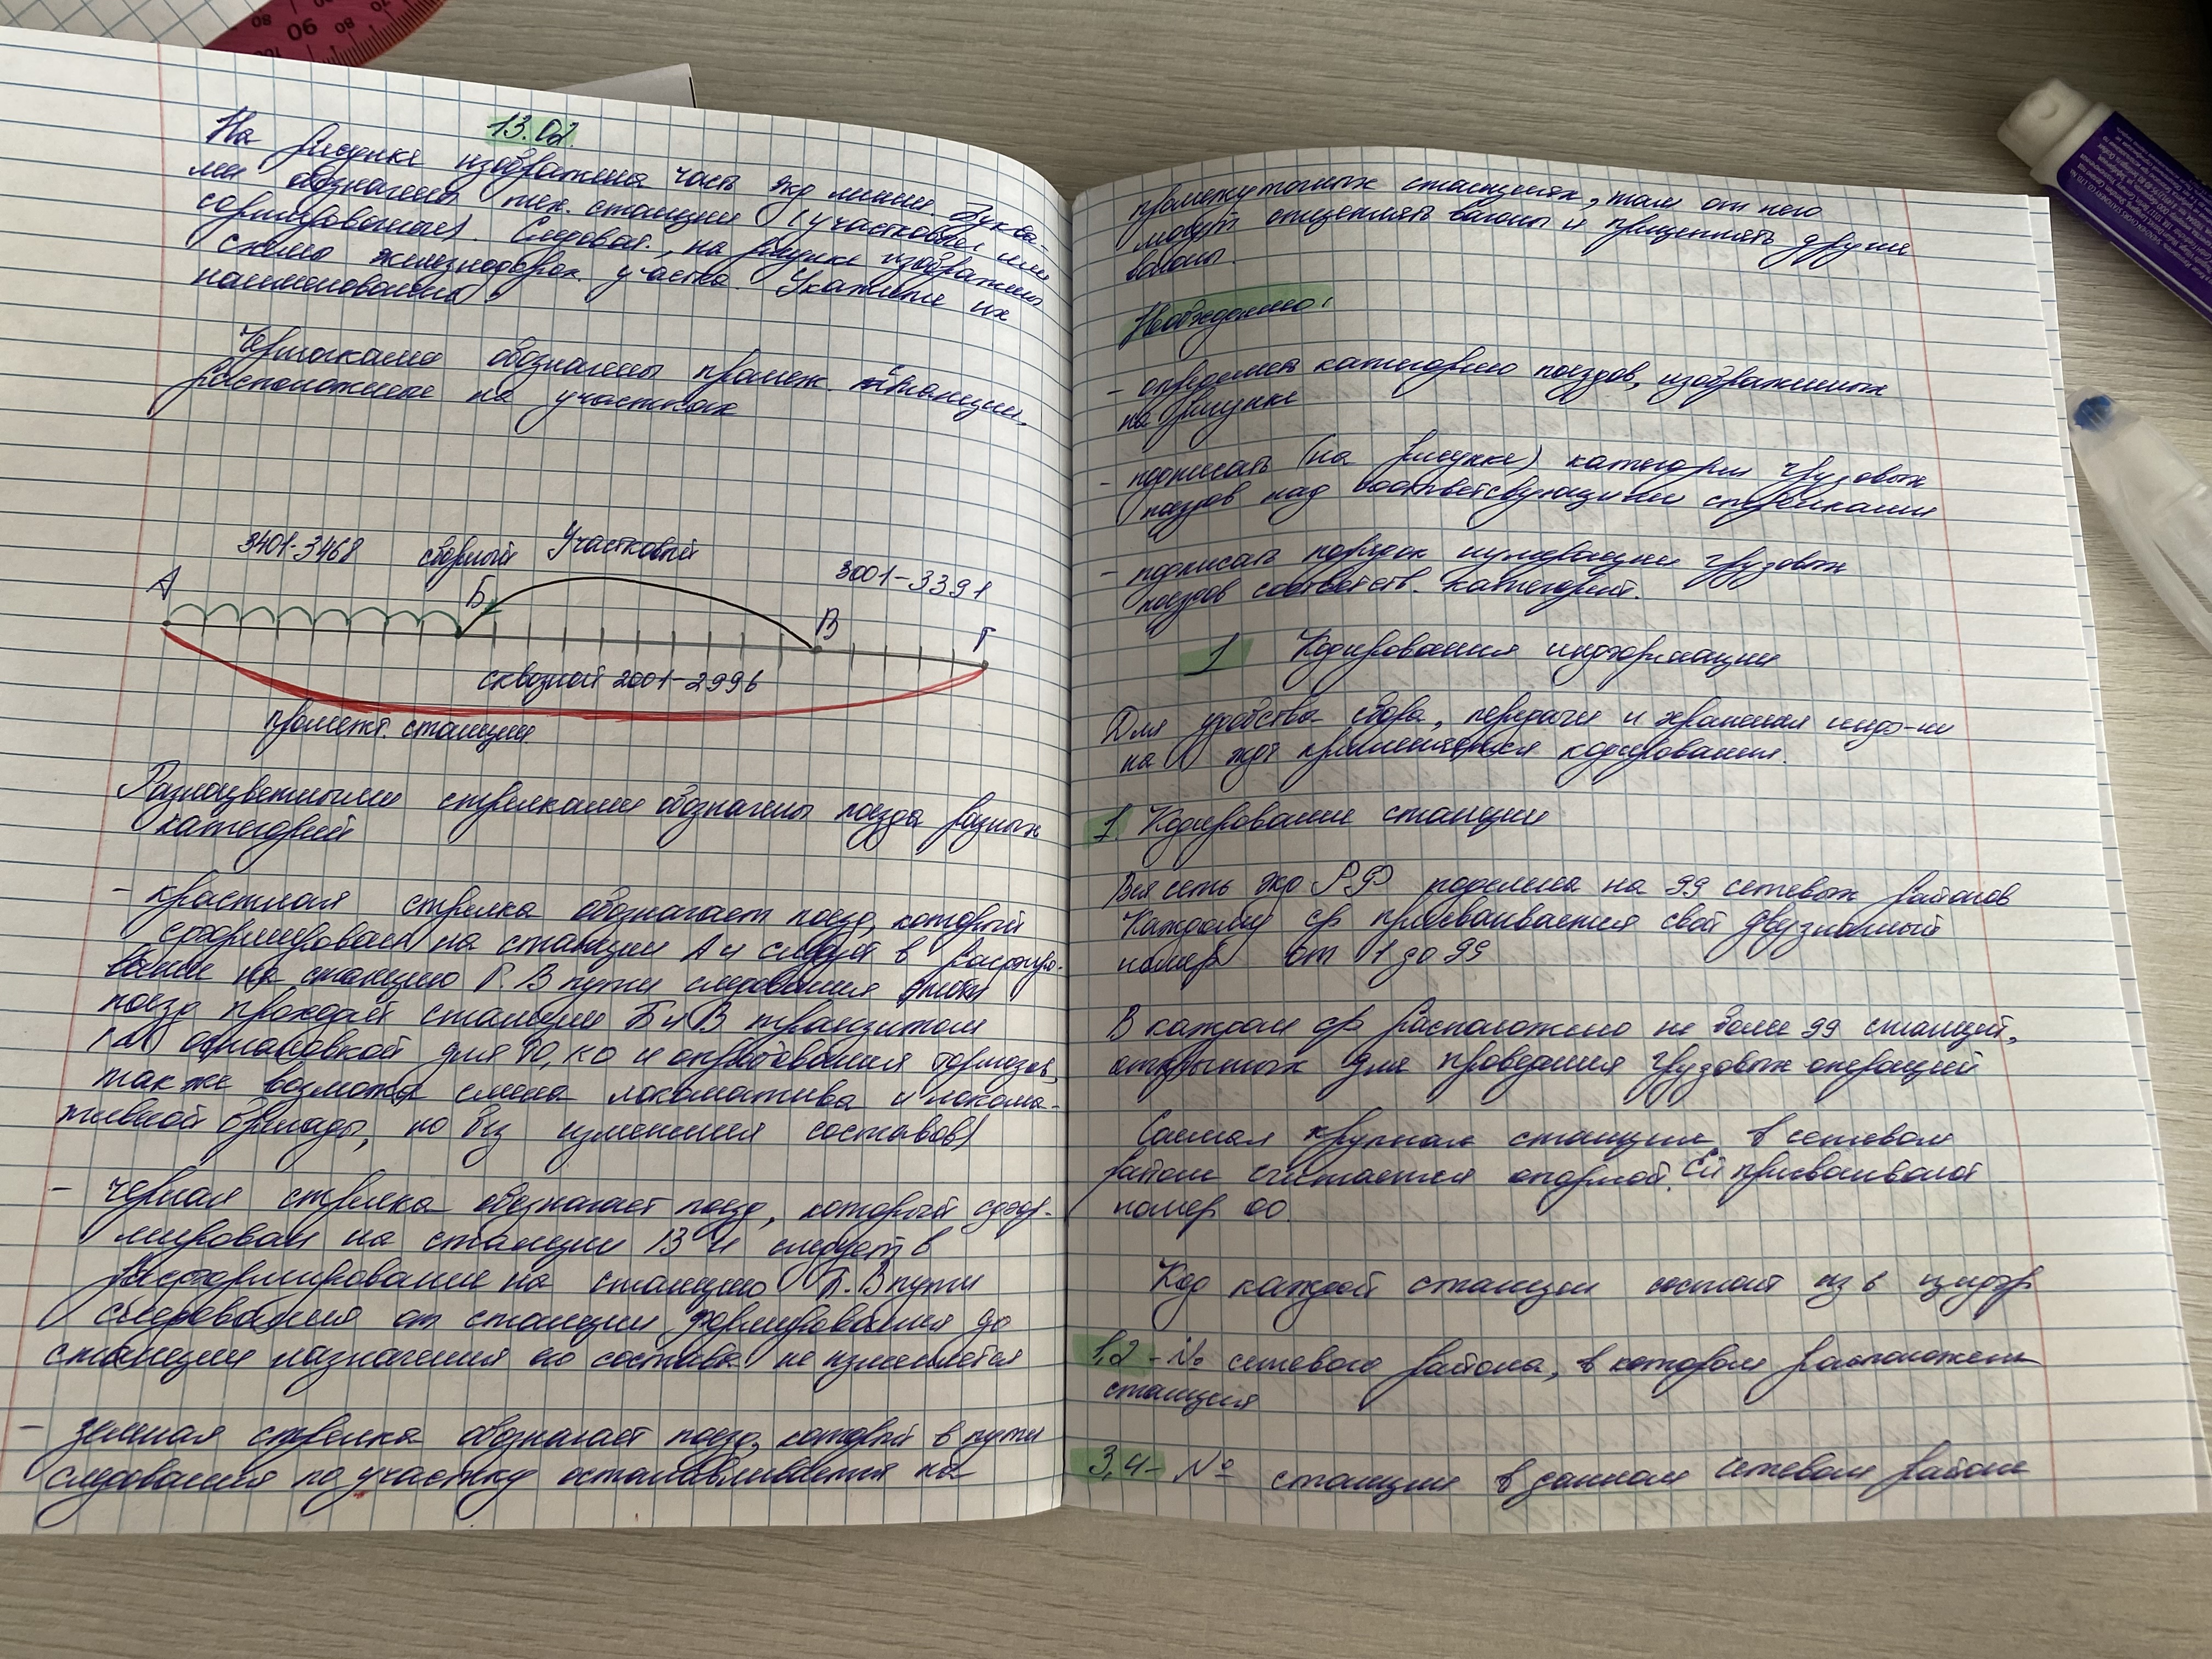 13.02
На рисунке изображена часть жд линии. Буква-
ми обозначены тех. станции (участковые или
сортировочные). Следоват., на рисунке изображены
схемы железнодорож. участка. Укажите их
наименования
Черточками обозначены промеж. станции,
расположенные на участках
3401-3468 сборный Участковый
3001-3391
А Б В Г
сквозной 2001-2998
промежт. станции
Разноцветными стрелками обозначены поезда разных
категорий
- красная стрелка обозначает поезд, который
сформирован на станции А и следует в расформиро-
вание на станцию Г. В пути следования
поезд проходит станции Б и В транзитом
(с остановкой для ТО, КО и опробования тормозов,
так же возможна смена локомотива и локомо-
тивной бригады, но без изменения составов)
- черная стрелка обозначает поезд, который сфор-
мирован на станции В и следует в
расформирование на станцию Б. В пути
следования от станции формирования до
станции назначения его состава не изменяется
- зеленая стрелка обозначает поезд, который в пути
следования по участку останавливается на
промежуточных станциях, там от него
могут отцеплять вагоны и прицеплять другие
вагоны.
Необходимо:
- определить категорию поездов, изображенных
на рисунке
- подписать (на рисунке) категории грузовых
поездов над соответствующими стрелками
- подписать порядок нумерации грузовых
поездов соответств. категорий.
1 Кодирования информации
Для удобства сбора, передачи и хранения инф-ии
на ждт применяется кодирования.
1. Кодирование станции
Вся сеть жд РФ поделена на 99 сетевых районов
Каждому ср присваивается свой двузначный
номер от 1 до 99
В каждом ср расположено не более 99 станций,
открытых для проведения грузовых операций
Самая крупная станция в сетевом
районе считается опорной. Ей присваивают
номер 00.
Код каждой станции состоит из 6 цифр
1,2 - № сетевого района, в котором расположена
станция
3,4 - № станции в данном сетевом районе